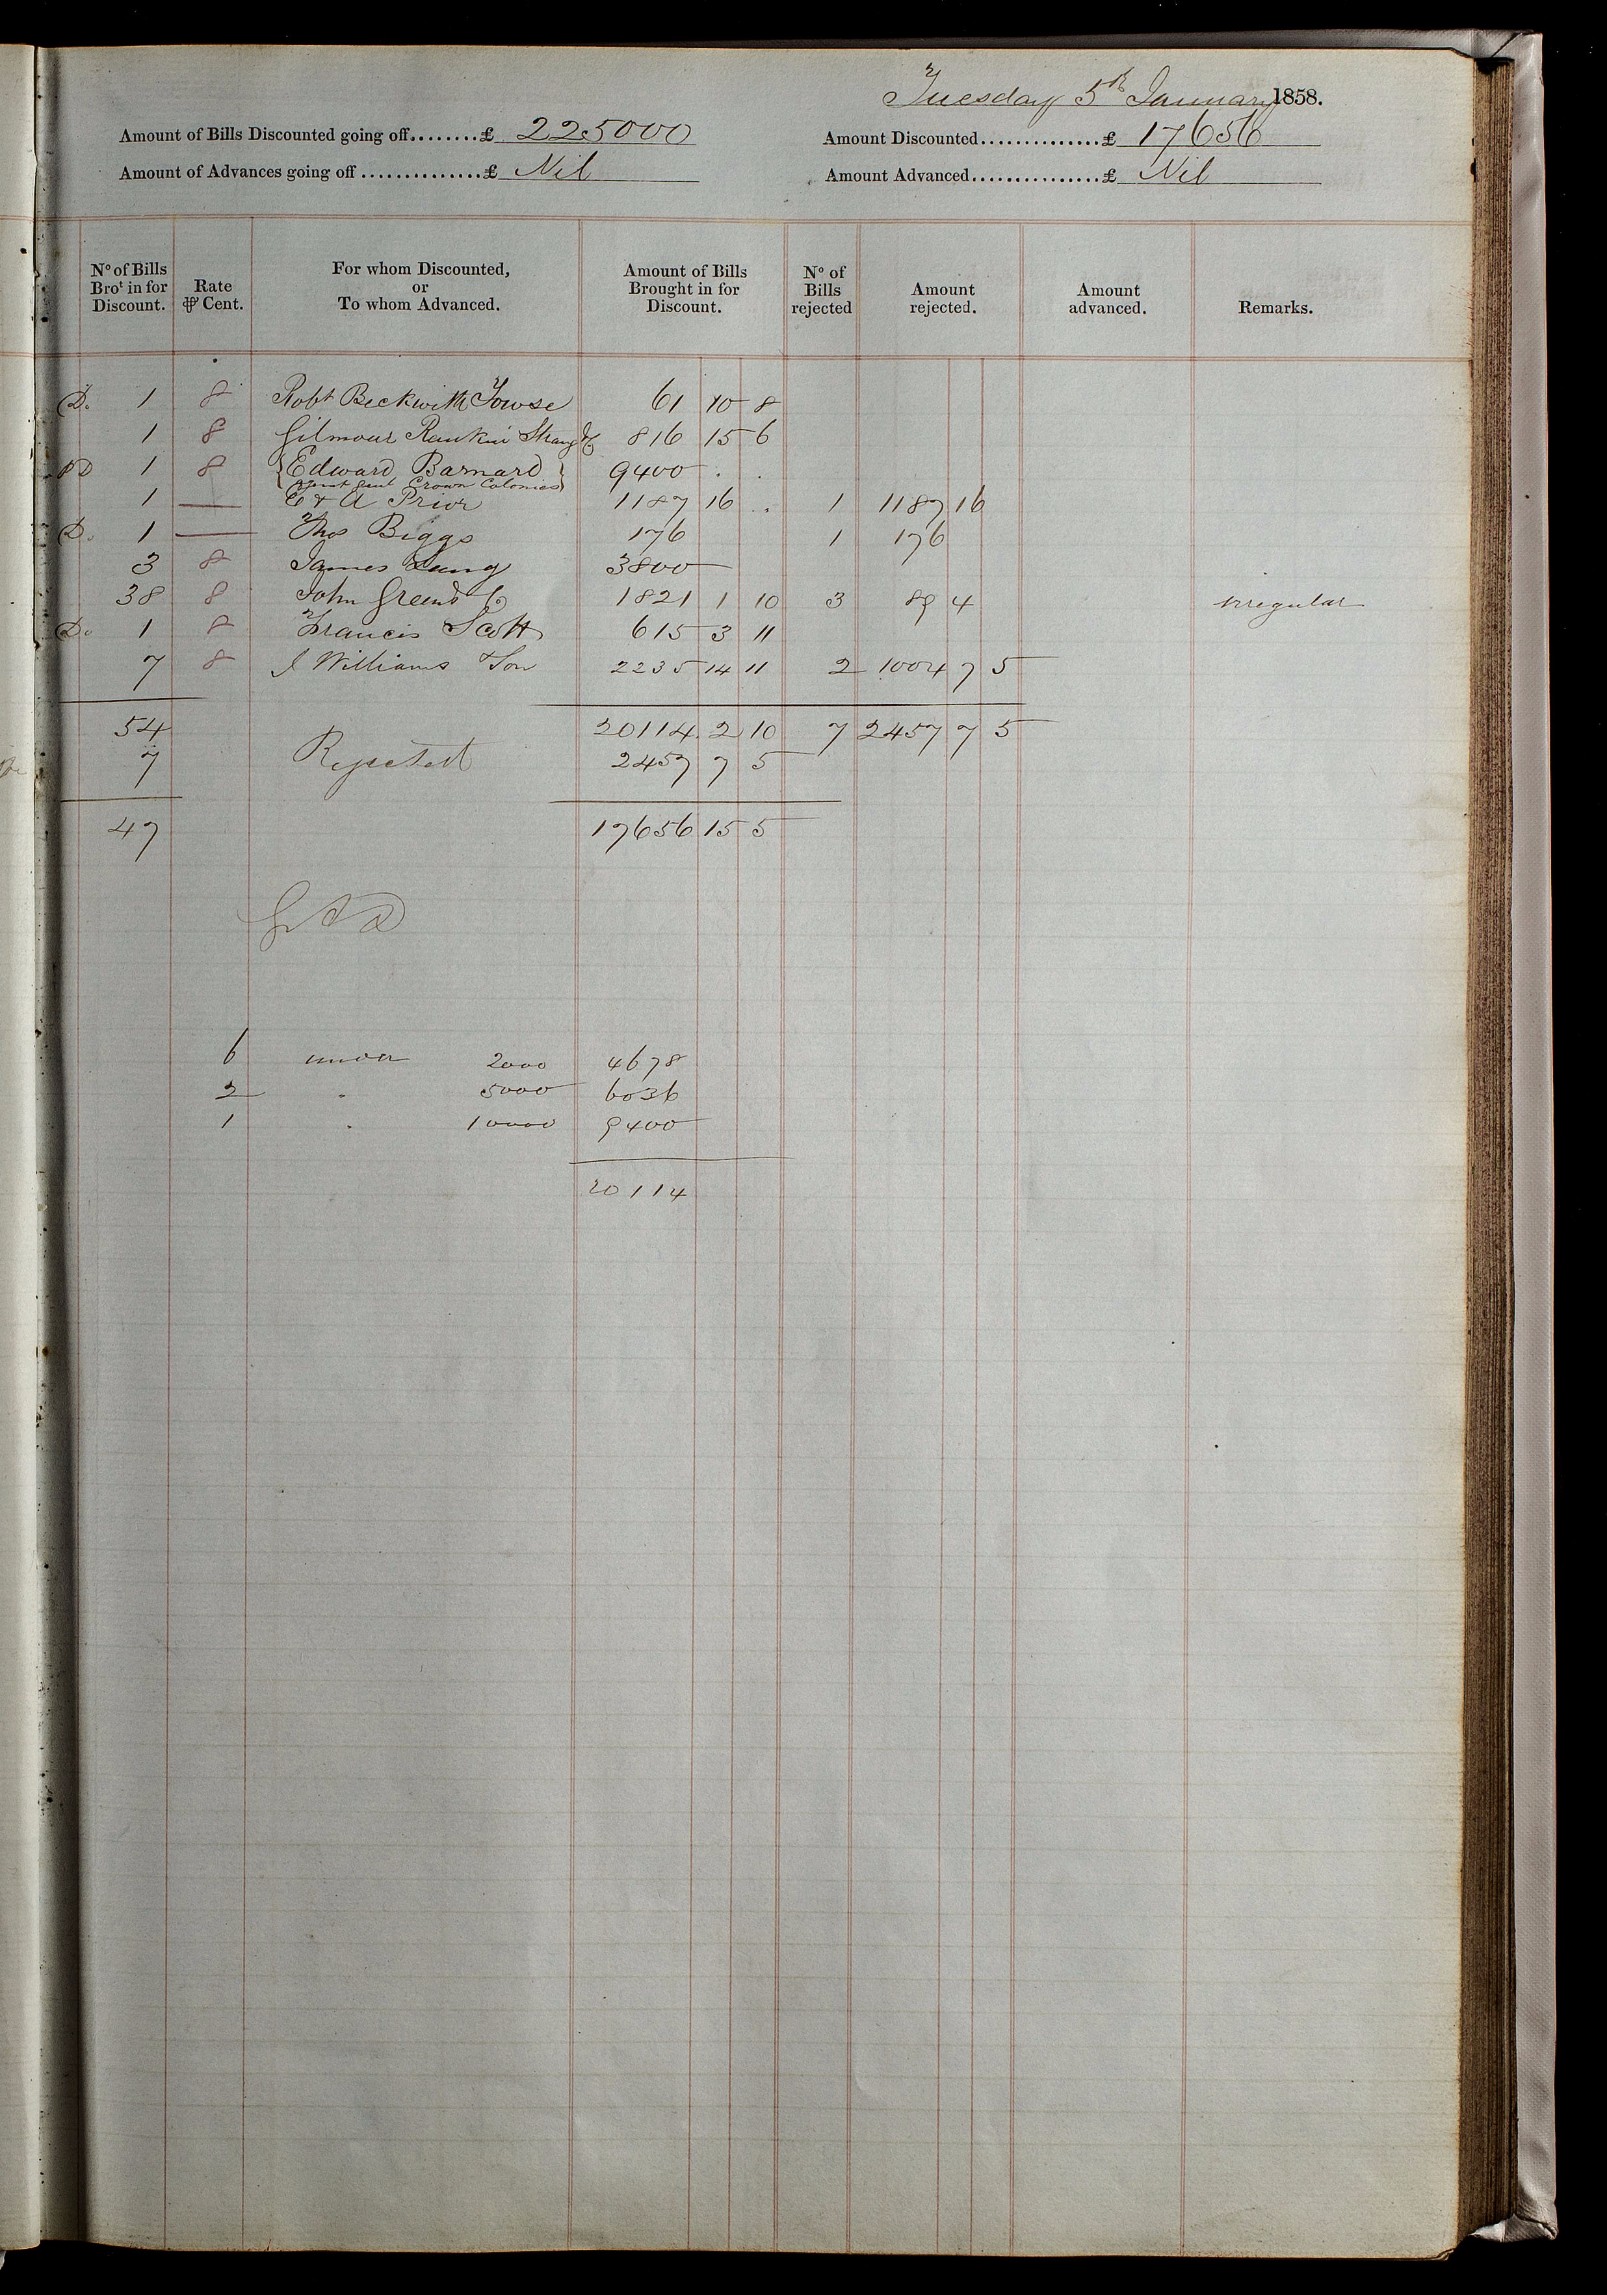 Tuesday 5th January 1858.
Amount of Bills Discounted going off........£ 225000
Amount Discounted..............£ 17656
Amount of Advances going off..............£ Nil
Amount Advanced...............£ Nil
No of Bills Brot in for Discount.
Rate ⅌ Cent.
For whom Discounted, or To whom Advanced.
Amount of Bills Brought in for Discount.
No of Bills rejected
Amount rejected.
Amount advanced.
Remarks.
D. 1 8 Robt Beckwith Towse 61 10 8
1 8 Gilmour Rankin Strang & Co 816 15 6
PD 1 8 {Edward Barnard} 9400 . .
Agent Genl Crown Colonies
1 — E & A Prior 1187 16 . 1 1187 16
D. 1 — Thos Biggs 176 1 176
3 8 James Laing 3800
38 8 John Green & Co 1821 1 10 3 89 4 irregular
D. 1 8 Francis Scott 615 3 11
7 8 J Williams & Son 2235 14 11 2 1004 7 5
54 20114 2 10 7 2457 7 5
7 Rejected 2457 7 5
47 17656 15 5
6 under 2000 4678
2 " 5000 6036
1 " 10000 9400
20114